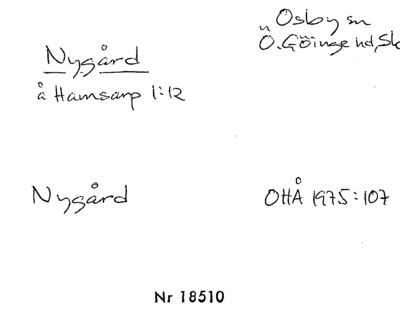 Nygård
å Hamsarp 1:12
Osby sn
Ö. Göinge hd, Sk
Nygård
OHÅ 1975:107
Nr 18510